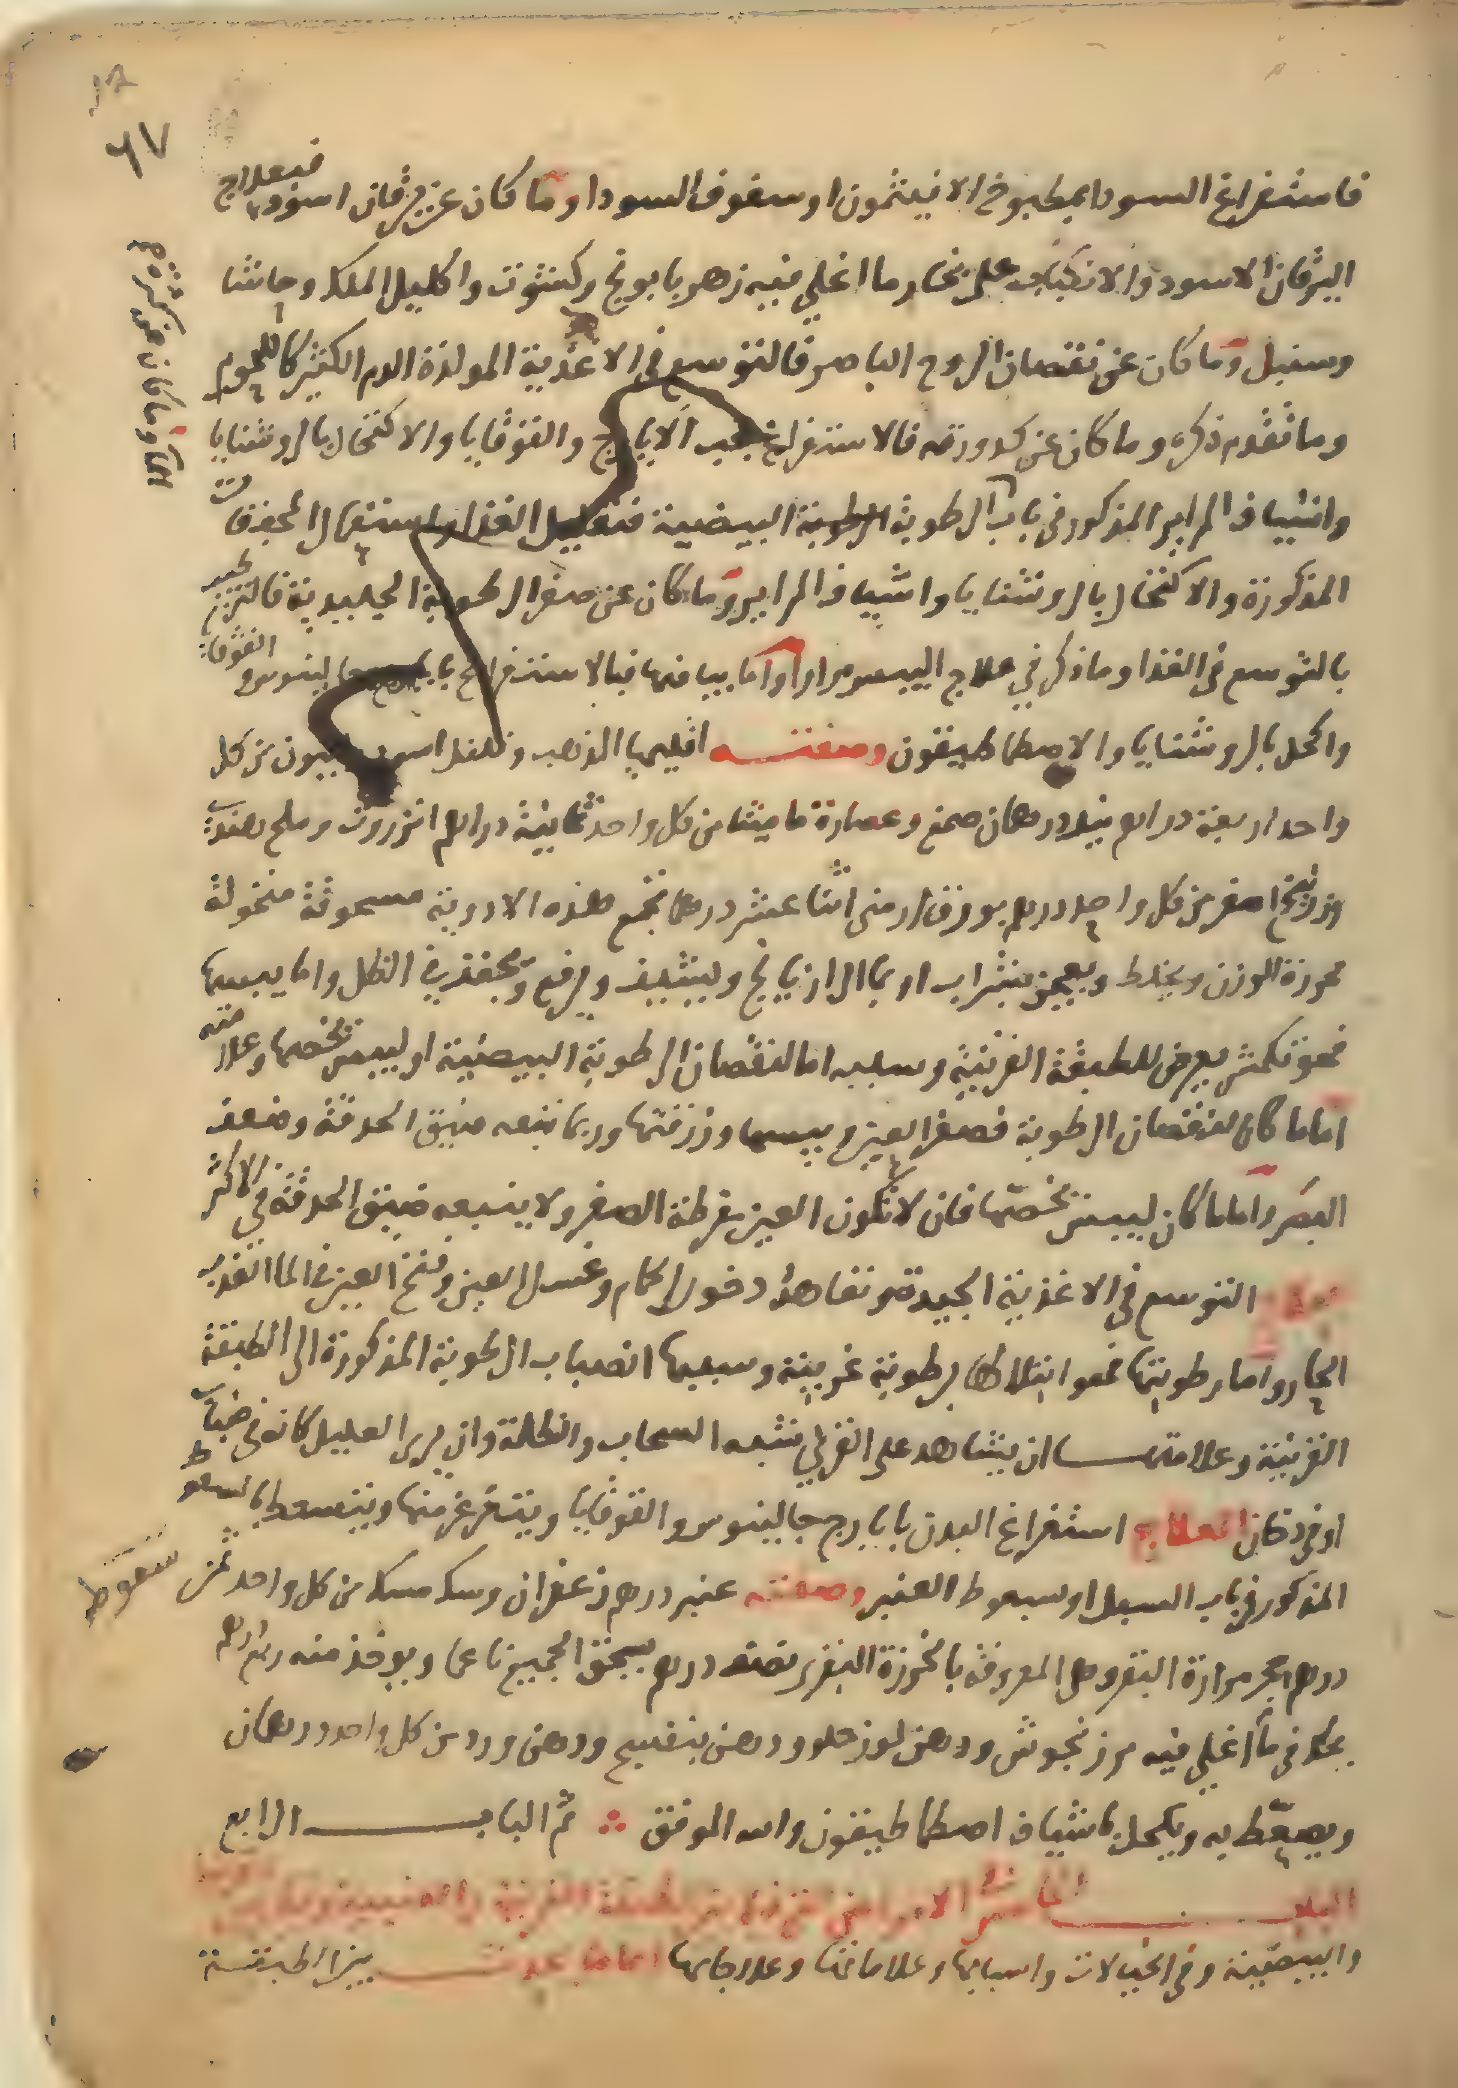 ٦٧
فاستفراغ السودا بمطبوخ الافيثمون او سفوف السودا وما كان عن يرقان اسود فبعلاج
اليرقان الاسود والانكباب على بخار ما اغلي فيه زهر بابونج وكشوت واكليل الملك وحاشا
وسنبل وما كان عن نقصان الروح الباصر فالتوسع في الاغذية المولدة الدم الكثير كاللحوم
وما تقدم ذكره وما كان عن كدورته فالاستفراغ بحب الايارج والقوقايا والاكتحال بالروشنايا
واشياف المراير المذكور في باب الرطوبة الرطوبة البيضية فتقليل الغذا واستعمال المجففات
المذكورة والاكتحال بالروشنايا واشياف المراير وما كان عن صغر الرطوبة الجليدية فالترطيب
بالتوسع في الغذا وما ذكر في علاج اليبس مرارا واما بياضها فبالاستفراغ بايارج جالينوس والقوقايا
والكحل بالروشنايا والاصطماطيقون وصفته اقليميا الذهب وفلفل اسود وافيون من كل
واحد اربعة دراهم نيلا درهمان صمغ وعصارة ماميثا من كل واحد ثمانية دراهم انزروت وملح هندي
وزرنيخ اصفر من كل واحد درهم بورق ارمني اثنا عشر درهما تجمع هذه الادوية مسحوقة منخولة
محررة الوزن ويخلط ويعجن بشراب او بما الرازيانج ويشيف ويرفع ويجفف في الظل واما يبسها
فهو تكمش يعرض للطبقة القرنية وسببه اما لنقصان الرطوبة البيضية او ليبس يخصها وعلامته
اما ما كان لنقصان الرطوبة فصغر العين ويبسها وزرقتها وربما تبعه ضيق الحدقة وضعف
البصر واما ما كان ليبس يخصها فان لا تكون العين مفرطة الصغر ولا يتبعه ضيق الحدقة في الاكثر
التوسع في الاغذية الجيدة وتعاهد دخول الحمام وغسل العين وفتح العين في الما العذب
الحار واما رطوبتها فهو ابتلالها برطوبة غريبة وسببها انصباب الرطوبة المذكورة الى الطبقة
القرنية وعلامتها ان يشاهد على القرني شبه السحاب والظلمة وان يرى العليل كانه في ضباب
او في دخان العلاج استفراغ البدن بايارج جالينوس والقوقايا ويتغرغر منها ويتسعط بالسعوط
المذكور في باب السبل او سعوط العنبر وصفته عنبر درهم زعفران وسك مسك من كل واحد ثمن
سعوط
درهم حجر مرارة البقر وهي المعروفة بالخرزة البقري نصف درهم يسحق الجميع ناعما ويوخذ منه ربع درهم
يحك في ما اغلي فيه مرزنجوش ودهن لوز حلو ودهن بنفسج ودهن ورد من كل واحد درهمان
ويسعط به ويكحل باشياف اصطماطيقون والله الموفق ثم الباب الرابع
الباب الخامس في الامراض
والبيضية وفي الخيالات واسبابها وعلاماتها وعلاجاتها بين الطبقة